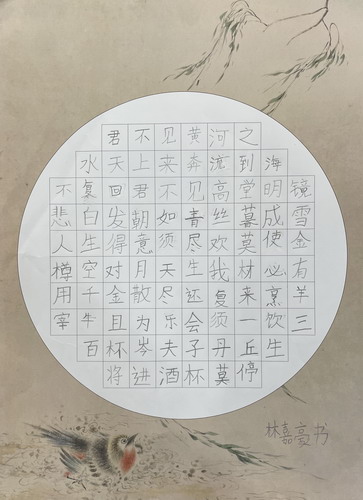 君不见黄河之
水天上来奔流到海
不复回君不见高堂明镜
悲白发朝如青丝暮成雪
人生得意须尽欢莫使金
樽空对月天生我材必有
用千金散尽还复来烹羊
宰牛且为乐会须一饮三
百杯岑夫子丹丘生
将进酒杯莫停
林嘉豪书